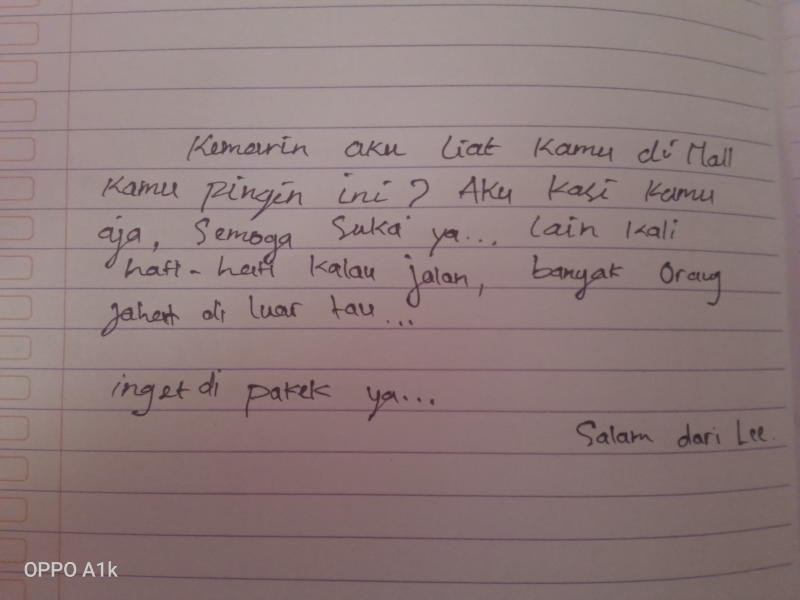 Kemarin aku liat kamu di Mall
kamu pingin ini? Aku kasi kamu
aja, semoga suka ya... lain kali
hati-hati kalau jalan, banyak orang
jahat di luar tau...
inget di pakek ya...
Salam dari Lee.
OPPO A1k